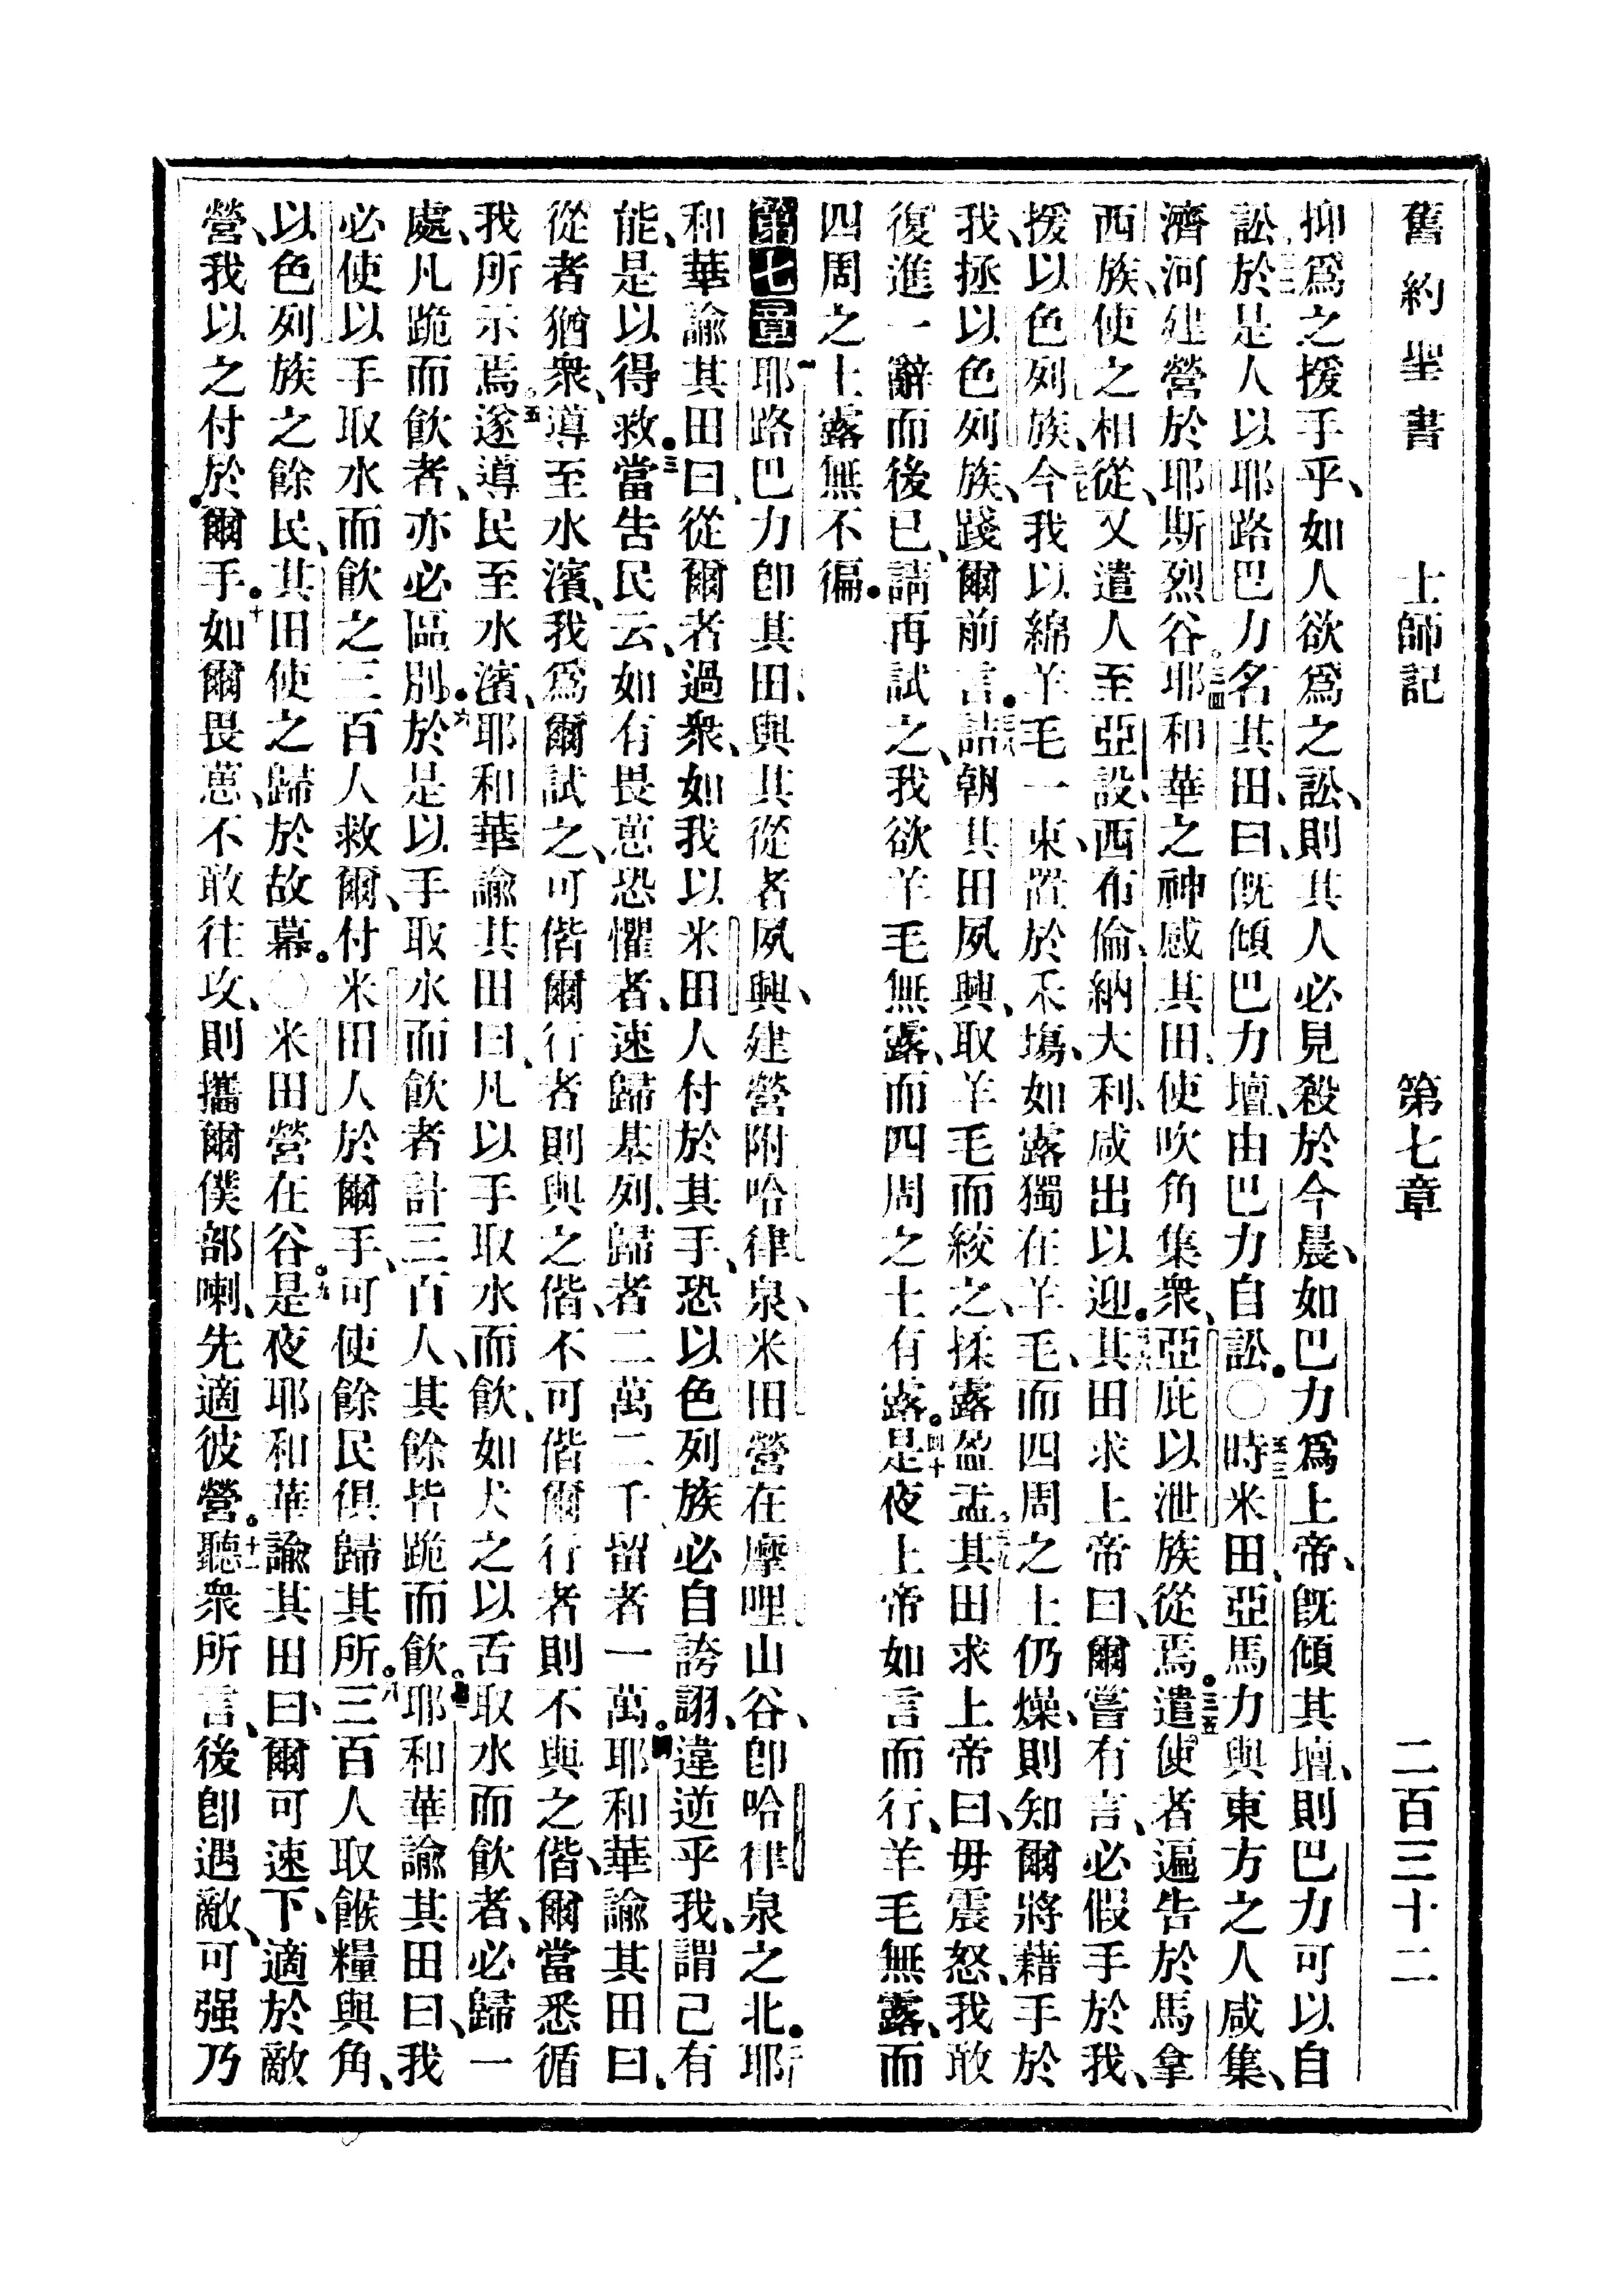 舊約聖書 士師記 第七章 二百三十二
抑爲之援手乎、如人欲爲之訟、則其人必見殺於今晨、如巴力爲上帝、旣傾其壇、則巴力可以自
訟、三二於是人以耶路巴力名其田、曰、旣傾巴力壇、由巴力自訟。〇三三時米田、亞馬力與東方之人咸集、
濟河建營於耶斯烈谷。三四耶和華之神感其田、使吹角集衆、亞庇以泄族從焉。三五遣使者遍告於馬拿
西族、使之相從、又遣人至亞設、西布倫、納大利、咸出以迎。三六其田求上帝曰、爾嘗有言、必假手於我、
援以色列族、三七今我以綿羊毛一束、置於禾塲、如露獨在羊毛、而四周之土仍燥、則知爾將藉手於
我、拯以色列族、踐爾前言。三八詰朝其田夙興、取羊毛而絞之、揉露盈盂。三九其田求上帝曰、毋震怒、我敢
復進一辭而後已、請再試之、我欲羊毛無露、而四周之土有露。四十是夜上帝如言而行、羊毛無露、而
四周之土露無不徧。
第七章 一耶路巴力卽其田、與其從者夙興、建營附哈律泉、米田營在摩哩山谷、卽哈律泉之北。二耶
和華諭其田曰、從爾者過衆、如我以米田人付於其手、恐以色列族必自誇詡、違逆乎我、謂己有
能、是以得救。三當告民云、如有畏葸恐懼者、速歸基列、歸者二萬二千、留者一萬。四耶和華諭其田曰、
從者猶衆、導至水濱、我爲爾試之、可偕爾行者、則與之偕、不可偕爾行者、則不與之偕、爾當悉循
我所示焉。五遂導民至水濱、耶和華諭其田曰、凡以手取水而飮、如犬之以舌取水而飮者、必歸一
處、凡跪而飮者、亦必區別。六於是以手取水而飮者、計三百人、其餘皆跪而飮。七耶和華諭其田曰、我
必使以手取水而飮之三百人救爾、付米田人於爾手、可使餘民俱歸其所。八三百人取餱糧與角、
以色列族之餘民、其田使之歸於故幕。〇米田營在谷。九是夜耶和華諭其田曰、爾可速下、適於敵
營、我以之付於爾手。十如爾畏葸、不敢往攻、則攜爾僕部喇、先適彼營。十一聽衆所言、後卽遇敵、可强乃